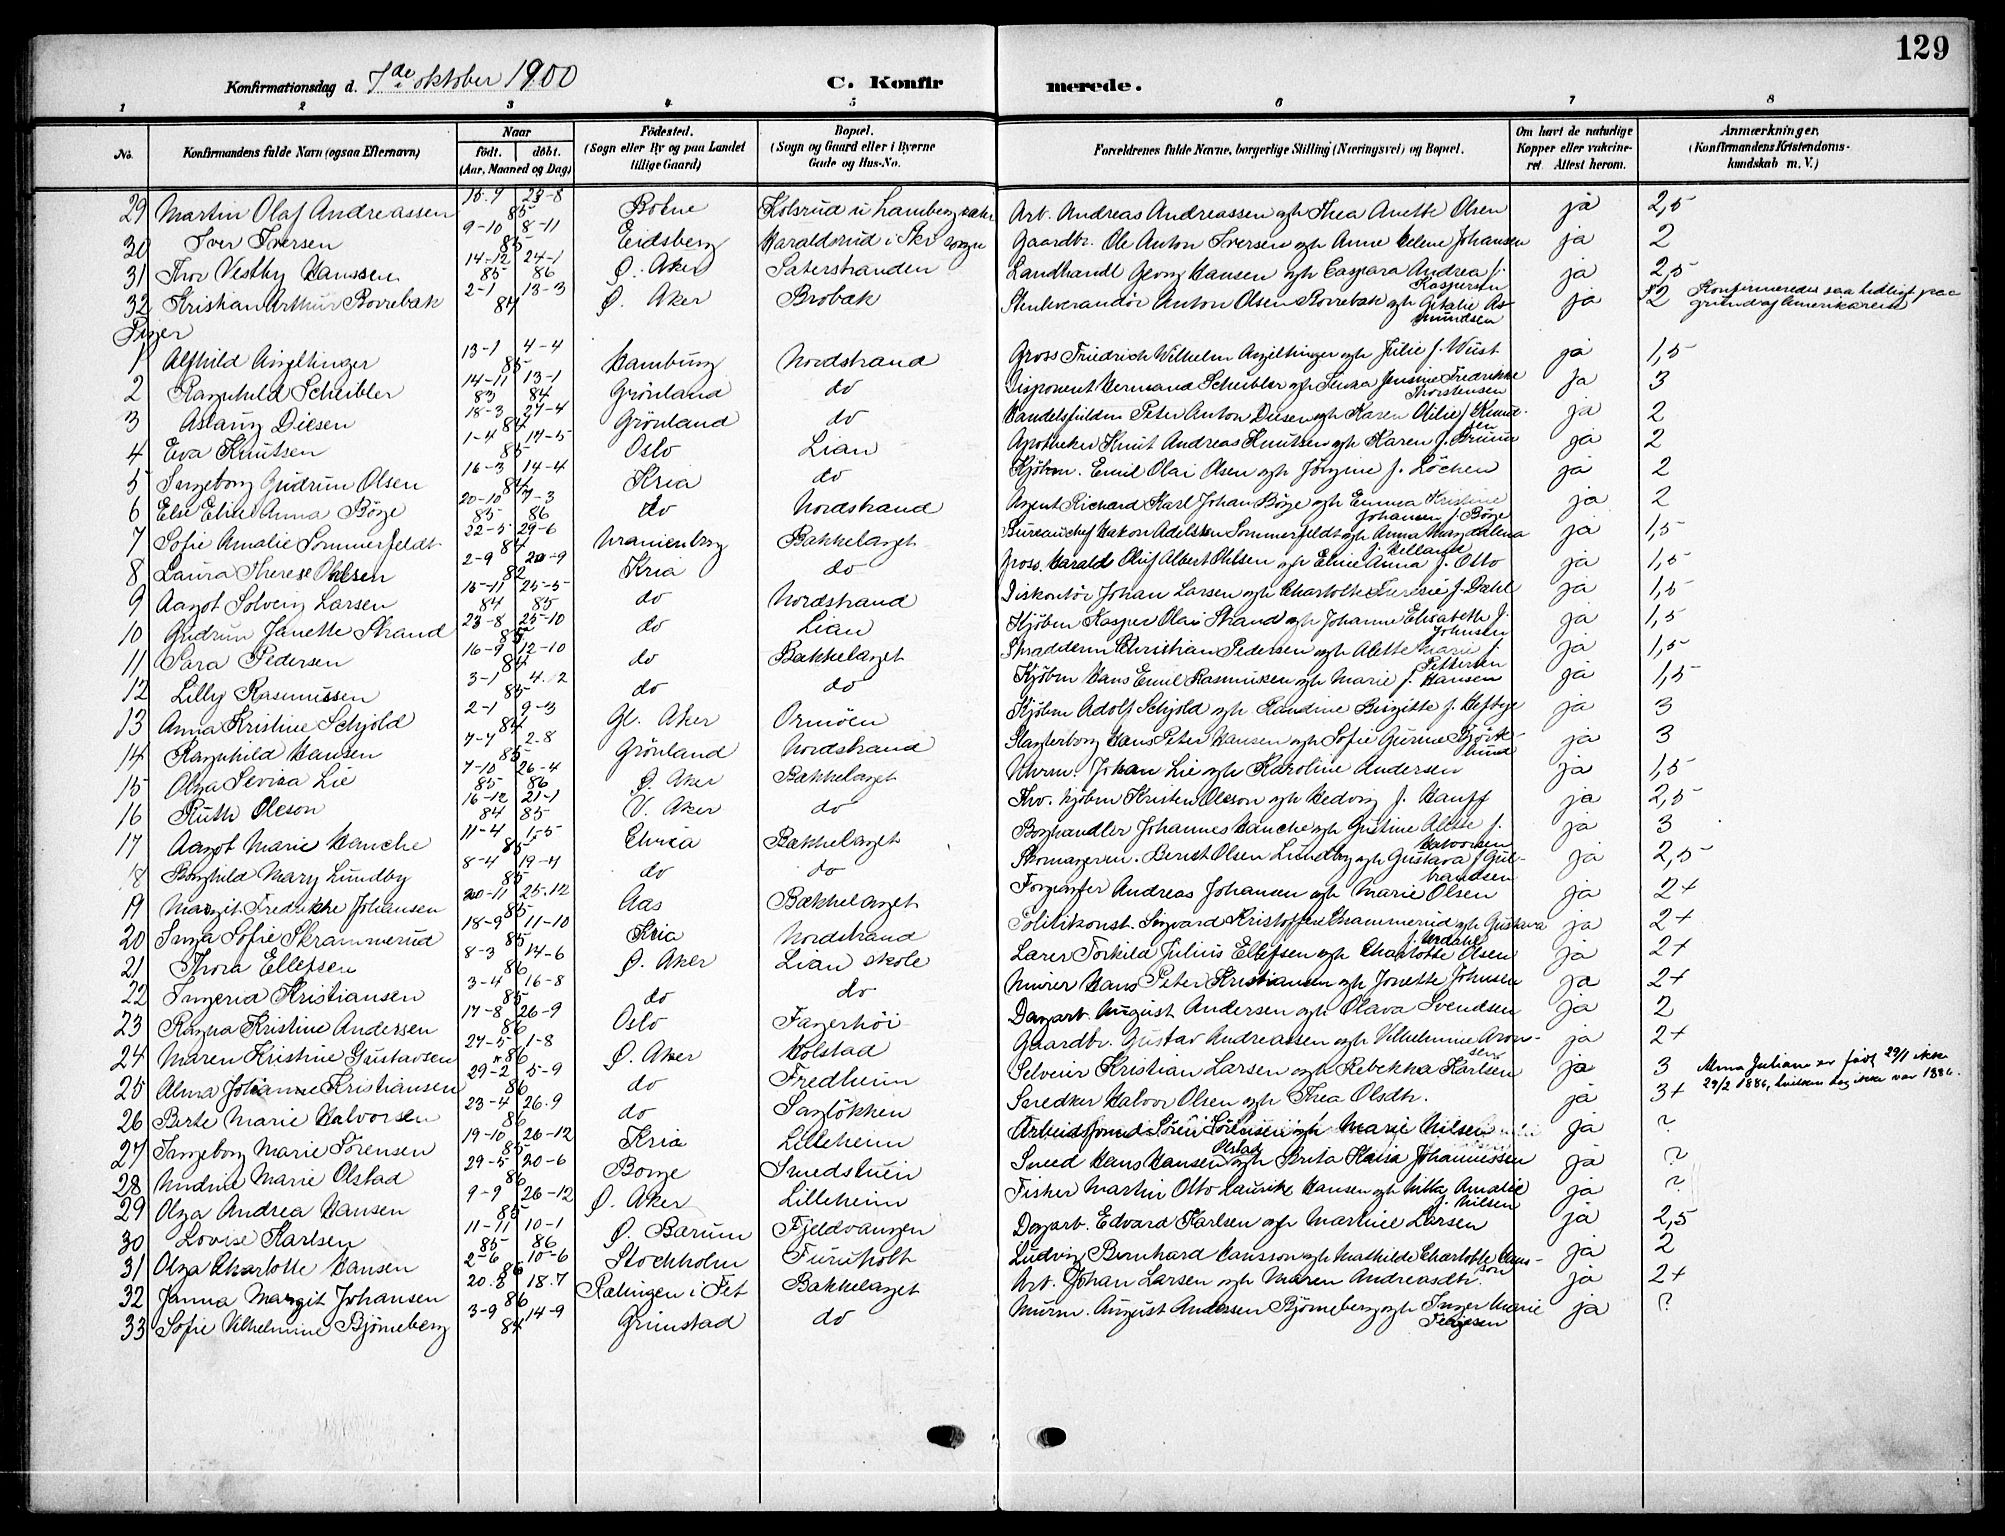 129
Konfirmationsdag d. 7de oktober 1900 C. Konfirmerede.
1 2 3 4 5 6 7 8
No. Konfirmandens fulde Navn (ogsaa Efternavn) Naar født. døbt. (Aar, Maaned og Dag) Fødested. (Sogn eller By og paa Landet tillige Gaard) Bopæl. (Sogn og Gaard eller i Byerne Gade og Hus-No. Forældrenes fulde Navne, borgerlige Stilling (Næringsvei) og Bopæl. Om havt de naturlige Kopper eller vakcineret. Attest herom. Anmærkninger. (Konfirmandens Kristendomskundskab m. V.)
29 Martin Olaf Andreassen 85 Botne Arb. Andreas Andreassen og h Thea Anette Olsen ja 2,5
30 Iver Iversen 9-10 8-11 85 Eidsberg Haraldsrud i Gaardbr. Ole Anton Iversen og h Anne Helene Johansen ja 2
31 Thor Vestby Hanssen 14-12 85 24-1 86 Ø. Aker Saterstranden Landhandl Georg Hansen og h Caspara Andrea f. Kaspersen ja 2,5
32 Kristian Arthur Rovrebæk 2-1 13-3 84 Ø. Aker Brobæk Stenleverandør Anton Olsen og h Asmundsen ja 2 Konfirmeredes saa tidligt paa grund af Amerikareise
Piger
1 Alfhild 13-1 4-4 85 Hamburg Nordstrand Gross Friedrich Wilhelm og h Julie f. Wüst ja 1,5
2 Ragnhild Scheibler 14-11 83 13-1 84 Grønland do Disponent Hermand Scheibler og h Jensine Fredrikke Thorstensen ja 3
3 Aslaug Diesen 18-3 27-4 84 Grønland do Handelsfuldm Peter Anton Diesen og h Karen Otilie f Knudsen ja 2
4 Eva Knutsen 1-4 17-5 85 Oslo Lian Apotheker Knut Andreas Knutsen og h Karen f. Bruun ja 2
5 Ingeborg Gudrun Olsen 16-3 14-4 84 Kria do Kjøbm. Emil Olai Olsen og h Jørgine f. Löchen ja 2
6 Else Elise Anna Böge 20-10 85 7-3 86 do Nordstrand Agent Richard Karl Johan Böge og h Emma Kristine Johansen f. Böge ja 2
7 Sofie Amalie Sommerfeldt 22-5 29-6 84 Uranienborg Bækkelaget Bureauchef Hakon Adelsten Sommerfeldt og h Anna Magdalena f. Kielland ja 1,5
8 Laura Therese Ohlsen 2-9 20-9 82 Kria do Gross. Harald Oluf Albert Ohlsen og h Eline Anna f. Otto ja 1,5
9 Aagot Solveig Larsen 15-11 84 25-5 85 do Nordstrand Diskontör Johan Larsen og h Charlotte Theresie f. Dahl ja 1,5
10 Gudrun Janette Strand 23-8 25-10 85 do Lian Kjöbm Kasper Olai Strand og h Johanne Elisabeth f. Johnsen ja 1,5
11 Sara Pedersen 16-9 12-10 84 do Bækkelaget Skrædderm Christian Pedersen og h Alette Marie f. Pettersen ja 1,5
12 Lilly Rasmussen 3-1 4.12 85 do do Kjöbm Hans Emil Rasmussen og h Marie f. Hansen ja 1,5
13 Anna Kristine Schjold 2-1 9-3 84 Gl. Aker Ormöen Kjöbm Adolf Schjold og h Randine Birgitte f. Heftye ja 3
14 Ragnhild Hansen 7-7 2-8 85 Grönland Nordstrand Slagterborg Hans Peter Hansen og h Sofie Gurine Björklund ja 3
15 Olga Lie 7-10 85 26-4 86 Ø. Aker Bækkelaget Uhrm. Johan Lie og h Karoline Andersen ja 1,5
16 Ruth Oleson 16-12 84 21-1 85 V. Aker do Fhv. kjøbm Kristen Oleson og h Hedvig f. Hauff ja 2,5
17 Aagot Marie Hanche 11-4 1-5 85 Bækkelaget Boghandler Johannes Hanche og h Gustine Alette f. Halvorsen ja 3
18 Borghild Mary Lundby 8-4 19-4 85 do do Skomagerm. Bernt Olsen Lundby og h Gustava f Gulbrandsen ja 2,5
19 Margit Fredrikke Johansen 20-11 25.12 85 Aas Bækkelaget Forgænger Andreas Johansen og h Marie Olsen ja 2+
20 Inga Sofie Skrammerud 18-9 11-10 85 Kria Nordstrand Politikonst. Sigvard Kristoffersen Skrammerud og h Gustava f. Urdahl ja 2+
21 Thora Ellefsen 8-3 14-6 86 Ø. Aker Lian skole Lærer Torkild Julius Ellefsen og h Charlotte Olsen ja 2+
22 Ingeria Kristiansen 3-4 16-8 85 do do Murer Hans Peter Kristiansen og h Jonette Johnsen ja 2+
23 Ragna Kristine Andersen 17-8 26-9 86 Oslo Fagerhöi Dagarb. August Andersen og h Olava Svendsen ja 2
24 Maren Kristine Gustavsen 27-5 1-8 86 Ø. Aker Holstad Gaardbr. Gustav Andreassen og h Vilhelmine Aronsen ja 2+
25 Alma Kristiansen 29-2 5-9 86 do Fredheim Selveier Kristian Larsen og h Rebekka Karlsen ja 3 Alma Juliane er født 29/1 ikke 29/2 1886, hvilken dag ikke var 1886.
26 Berte Marie Halvorsen 23-4 26.9 86 do Saglökken Snedker Halvor Olsen og h Thea Olsdtr. ja 3+
27 Ingeborg Marie Sörensen 19-10 26-12 85 Kria Lilleheim Arbeidsformd Sören Sörensen og h Marie Nilsen ja ?
28 Andrine Marie Olstad 29-5 20-6 86 Borge Smedstuen Smed Hans Hansen Olstad og h Berta Maria Johannessen ja ?
29 Olga Andrea Hansen 9-9 26-12 85 Ø. Aker Lilleheim Fisker Martin Otto Lauritz Hansen og h Milla Amalie f. Nilsen ja ?
30 Lovise Karlsen 11-11 85 10-1 86 Ø. Bærum Fjeldvangen Dagarb. Edvard Karlsen og h Martine Larsen ja 2,5
31 Olga Charlotte Hansen 2-6 10-6 86 Stockholm Furuholt Ludvig Bernhard Hansson og h Mathilde Charlotte Hansson ja 2
32 Janna Margit Johansen 20.6 18.7 86 Rælingen i Fet Bækkelaget Arb. Johan Larsen og h Maren Andreasdtr. ja 2+
33 Sofie Vilhelmine Bjørneberg 3-9 14-9 84 Grimstad do Murm. August Andersen Björneberg og h Inger Marie Terjesen ja ?